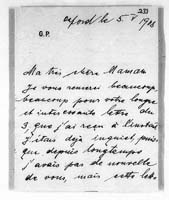 233
Oxford le 5. V 1918
O.P.
Ma très chère Maman
Je vous remercie beaucoup,
beaucoup pour votre longue
et intéressante lettre du
3, que j'ai reçu à l'instant
J'étais déjà inquiet, puis-
que depuis longtemps
j'avais pas de nouvelle
de vous, mais cette let-